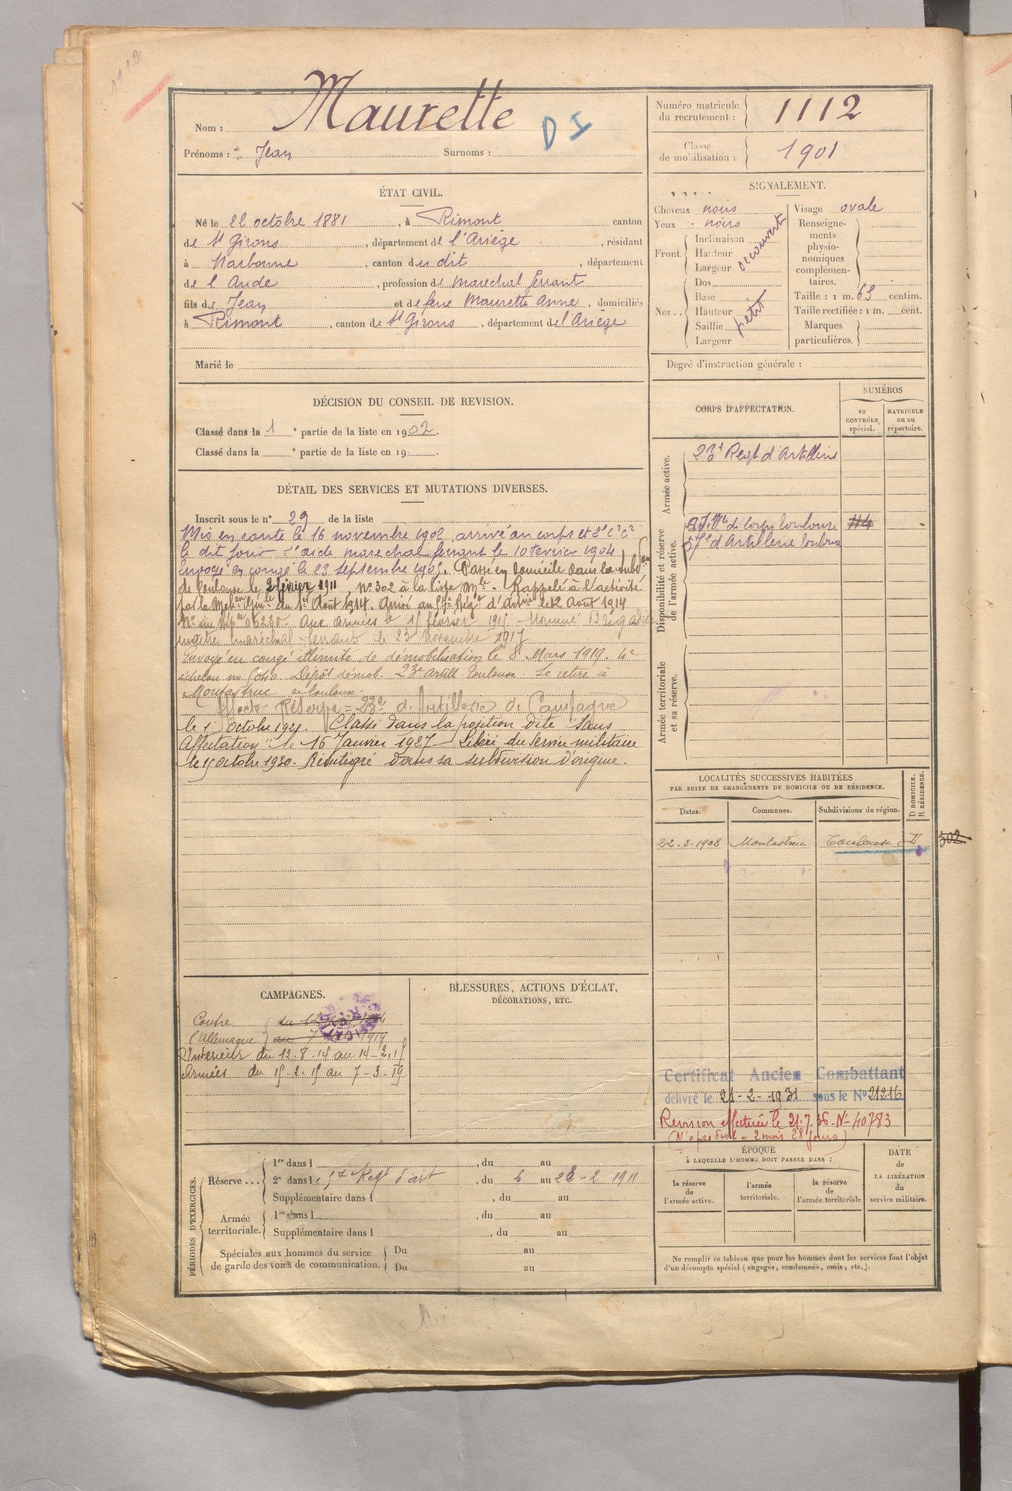 Nom : Maurette
D I
Prénoms : Jean Surnoms :
Numéro matricule du recrutement : 1112
Classe de mobilisation : 1901
ÉTAT CIVIL.
Né le 22 octobre 1881, à Rimont canton
de St Girons, département de l'Ariège, résidant
à Narbonne, canton du dit, département
de l'Aude, profession de marechal ferrant
fils de Jean et de feue Maurette Anne, domiciliés
à Rimont, canton de St Girons, département de l'Ariège
Marié le
SIGNALEMENT.
Cheveux noirs
Yeux noirs
Front Inclinaison
Hauteur
Largeur
découvert
Nez Dos
Base
Hauteur
Saillie
Largeur
petit
Visage ovale
Renseignements physionomiques complémentaires.
Taille : 1 m. 63 centim.
Taille rectifiée : 1 m. cent.
Marques particulières.
Degré d'instruction générale :
DÉCISION DU CONSEIL DE REVISION.
Classé dans la 1 e partie de la liste en 1902.
Classé dans la e partie de la liste en 19
DÉTAIL DES SERVICES ET MUTATIONS DIVERSES.
Inscrit sous le n° 29 de la liste
Mis en route le 16 novembre 1902, arrivé au corps et 2e c er
le dit jour. aide marechal ferrant le 10 février 1904
Envoyé en congé le 23 septembre 1905. Passé en domicile dans la subdon
de Toulouse le 2 février 1911, n° 302 à la liste mle. Rappelé à l'activité
par la Mobon du 1er Août 1914. Arrivé au 57e Régt d'Artie le 12 Août 1914
Aux armées le 15 février 1915. Nommé Brigadier
maître maréchal ferrant le 23 Novembre 1917
Envoyé en congé illimité de démobilisation le 8 Mars 1919. 4e
échelon Dépôt démob. 23e Artill Toulouse. Se retire à
Montastruc
Affecté Réserve = 23e d'Artillerie de Campagne
le 1 Octobre 1921. Classé dans la position dite "Sans
Affectation" le 16 Janvier 1927 Libéré du Service militaire
le 15 octobre 1930. Réintégré dans sa subdivision d'origine.
CORPS D'AFFECTATION.
NUMÉROS
au CONTRÔLE spécial.
MATRICULE ou au répertoire.
Armée active.
23e Regt d'Artillerie
Disponibilité et réserve de l'armée active.
de Corps Toulouse 114
57e d'Artillerie Toulouse
Armée territoriale et sa réserve.
LOCALITÉS SUCCESSIVES HABITÉES
PAR SUITE DE CHANGEMENTS DE DOMICILE OU DE RÉSIDENCE.
Dates. Communes. Subdivisions de région.
D DOMICILE. R RÉSIDENCE.
22.3.1908 Montastruc Toulouse D 302
CAMPAGNES.
Contre l'Allemagne
Intérieur du 12-8-14 au 14-2-15
Armées du 15-2-15 au 7-3-19
BLESSURES, ACTIONS D'ÉCLAT,
DÉCORATIONS, ETC.
Certificat Ancien Combattant
délivré le 21-2-1931 sous le N° 21216
Revision effectuée le 21.7.36. N° 40783
PÉRIODES D'EXERCICES.
Réserve ... 1re dans l , du au
2e dans l 57e Regt d'art, du 6 au 28-2-1911
Supplémentaire dans l , du au
Armée territoriale. 1re dans l , du au
Supplémentaire dans l , du au
Spéciales aux hommes du service de garde des voies de communication. Du au
Du au
ÉPOQUE
À LAQUELLE L'HOMME DOIT PASSER DANS :
la réserve de l'armée active.
l'armée territoriale.
la réserve de l'armée territoriale
DATE
de
LA LIBÉRATION
du
service militaire.
Ne remplir ce tableau que pour les hommes dont les services font l'objet
d'un décompte spécial (engagés, condamnés, omis, etc.).